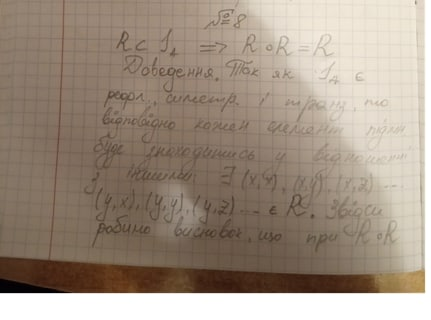 №8
R ⊂ 1_A => R ∘ R = R
Доведення. Так як 1_A є
рефл., симетр. і транз, то
відповідно кожен елемент
буде знаходитись у відношенні
з іншими ∃ (x,x), (x,y), (x,z) ...
(y,x), (y,y), (y,z) ... ∈ R. Звідси
робимо висновок, що при R∘R